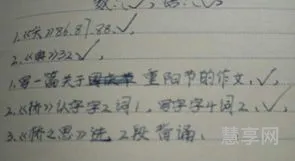 数:✓, 语:✓,
1.《伴》86.87.88.✓,
2.《典》32✓,
1.写一篇关于重阳节的作文,✓,
2.《桥》认字字2词1,写字字4词2、✓,
3.《桥之思》选2段背诵、
慧享网